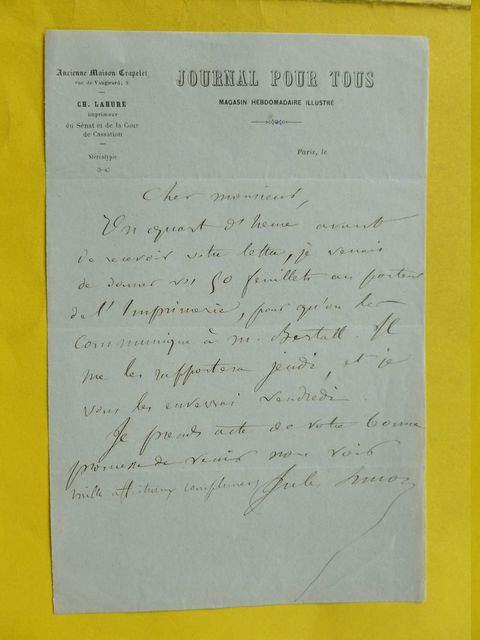 Ancienne Maison Crapelet
rue de Vaugirard, 9
CH. LAHURE
imprimeur
du Sénat et de la Cour
de Cassation
Stéréotypie
JOURNAL POUR TOUS
MAGASIN HEBDOMADAIRE ILLUSTRÉ
Paris, le
Cher monsieur,
Un quart d'heure avant
de recevoir votre lettre, je venais
de donner vos 50 feuillets au porteur
de l'Imprimerie, pour qu'on les
communique à m. Bertall. Il
me les rapportera jeudi, et je
vous les enverrai vendredi.
Je prends acte de votre bonne
promesse de venir nous voir
mille affectueux compliments Jules Simon